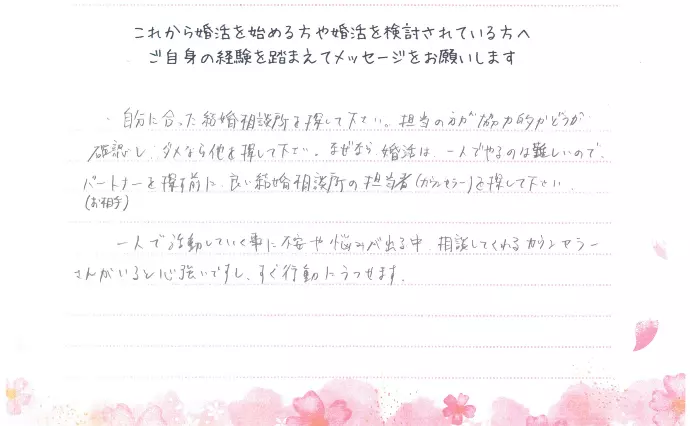 これから婚活を始める方や婚活を検討されている方へ
ご自身の経験を踏まえてメッセージをお願いします
・自分に合った結婚相談所を探して下さい。担当の方が協力的かどうか
確認し、ダメなら他を探して下さい。なぜなら婚活は、一人でやるのは難しいので、
パートナーを探す前に、良い結婚相談所の担当者(カウンセラー)を探して下さい。
(お相手)
一人で活動していく事に不安や悩みが出る中、相談してくれるカウンセラー
さんがいると心強いですし、すぐ行動にうつせます。